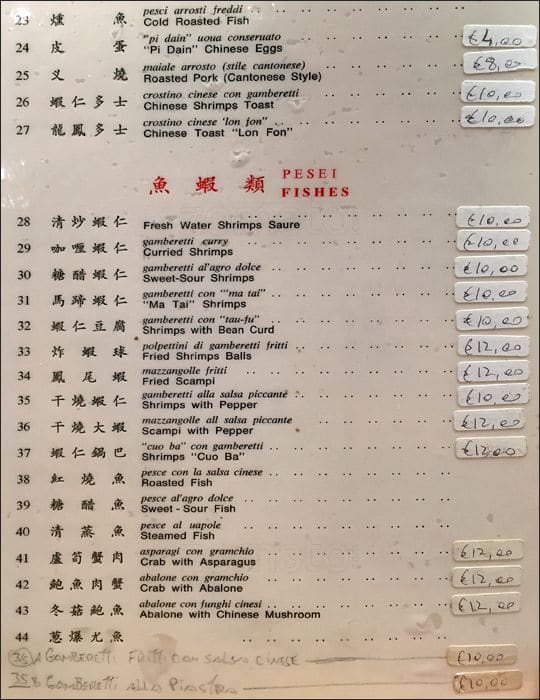 pesci arrosti freddi
23 燻魚 Cold Roasted Fish
"pi dain" uoua conseruato
24 皮蛋 "Pi Dain" Chinese Eggs €4,00
maiale arrosto (stile cantonese)
25 叉燒 Roasted Pork (Cantonese Style) €8,00
crostino cinese con gamberetti
26 蝦仁多士 Chinese Shrimps Toast €10,00
crostino cinese 'lon fon'
27 龍鳳多士 Chinese Toast "Lon Fon" €10,00
魚蝦類 PESEI
FISHES
28 清炒蝦仁 Fresh Water Shrimps Saure €10,00
gamberetti curry
29 咖喱蝦仁 Curried Shrimps €10,00
gamberetti al'agro dolce
30 糖酷蝦仁 Sweet-Sour Shrimps €10,00
gamberetti con '"ma tai"
31 馬蹄蝦仁 "Ma Tai" Shrimps €10,00
gamberetti con "tau-fu"
32 蝦仁豆腐 Shrimps with Bean Curd €10,00
polpettini di gamberetti fritti
33 炸蝦球 Fried Shrimps Balls €12,00
mazzangolle fritti
34 鳳尾蝦 Fried Scampi €12,00
gamberetti alla salsa piccante
35 干燒蝦仁 Shrimps with Pepper €10,00
mazzangolle all salsa piccante
36 干燒大蝦 Scampi with Pepper €12,00
"cuo ba" con gamberetti
37 蝦仁鍋巴 Shrimps "Cuo Ba" €12,00
pesce con la salsa cinese
38 紅燒魚 Roasted Fish
pesce al'agro dolce
39 糖醋魚 Sweet - Sour Fish
pesce al uapole
40 清蒸魚 Steamed Fish
asparagi con gramchio
41 盧筍蟹肉 Crab with Asparagus €12,00
abalone con gramchio
42 鮑魚肉蟹 Crab with Abalone €12,00
abalone con funghi cinesi
43 冬菇鮑魚 Abalone with Chinese Mushroom €12,00
44 蔥爆尤魚
36 A GAMBERETTI FRITTI CON SALSA CINESE €10,00
35 B GAMBERETTI ALLA PIASTRA €10,00